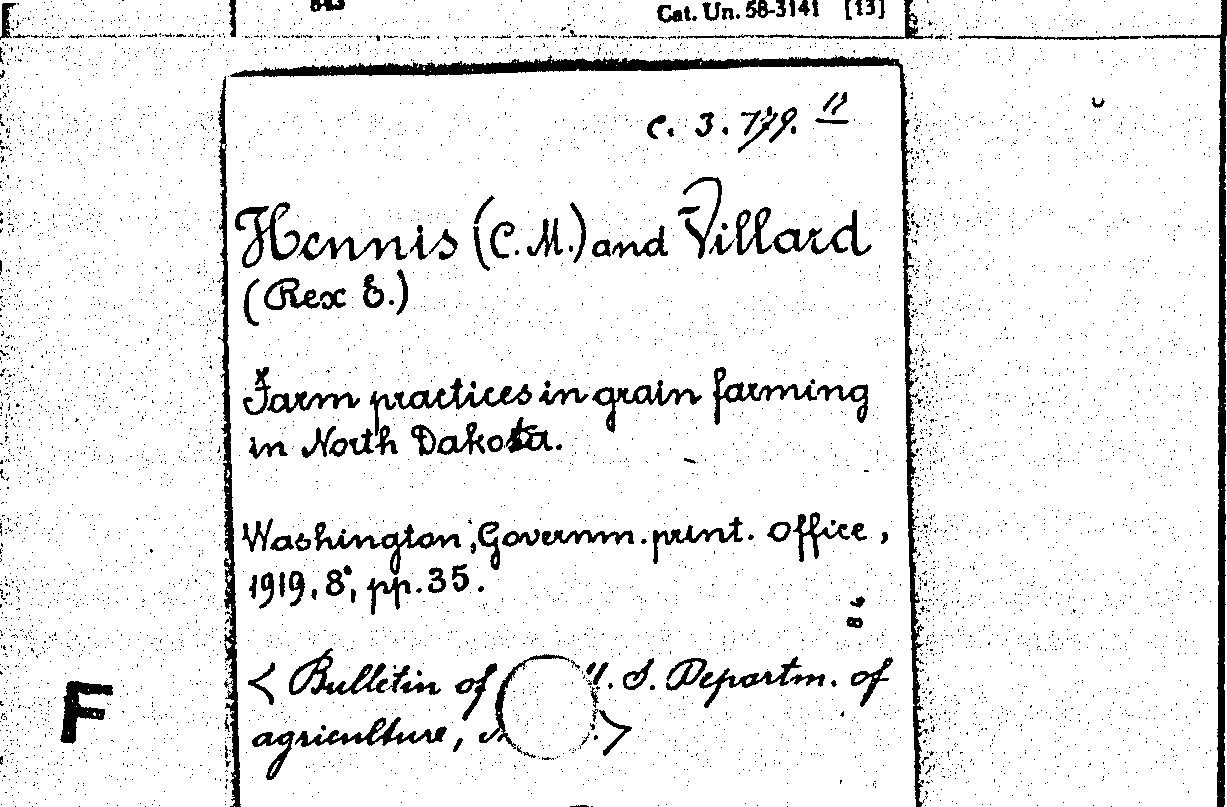 843
Cat. Un. 58-3141 [13]
C. 3. 779. 11
Hennis (C. M.) and Villard
(Rex E.)
Farm practices in grain farming
in North Dakota.
Washington, Governm. print. Office,
1919, 8°, pp. 35.
84
< Bulletin of U. S. Departm. of
agriculture, >
F